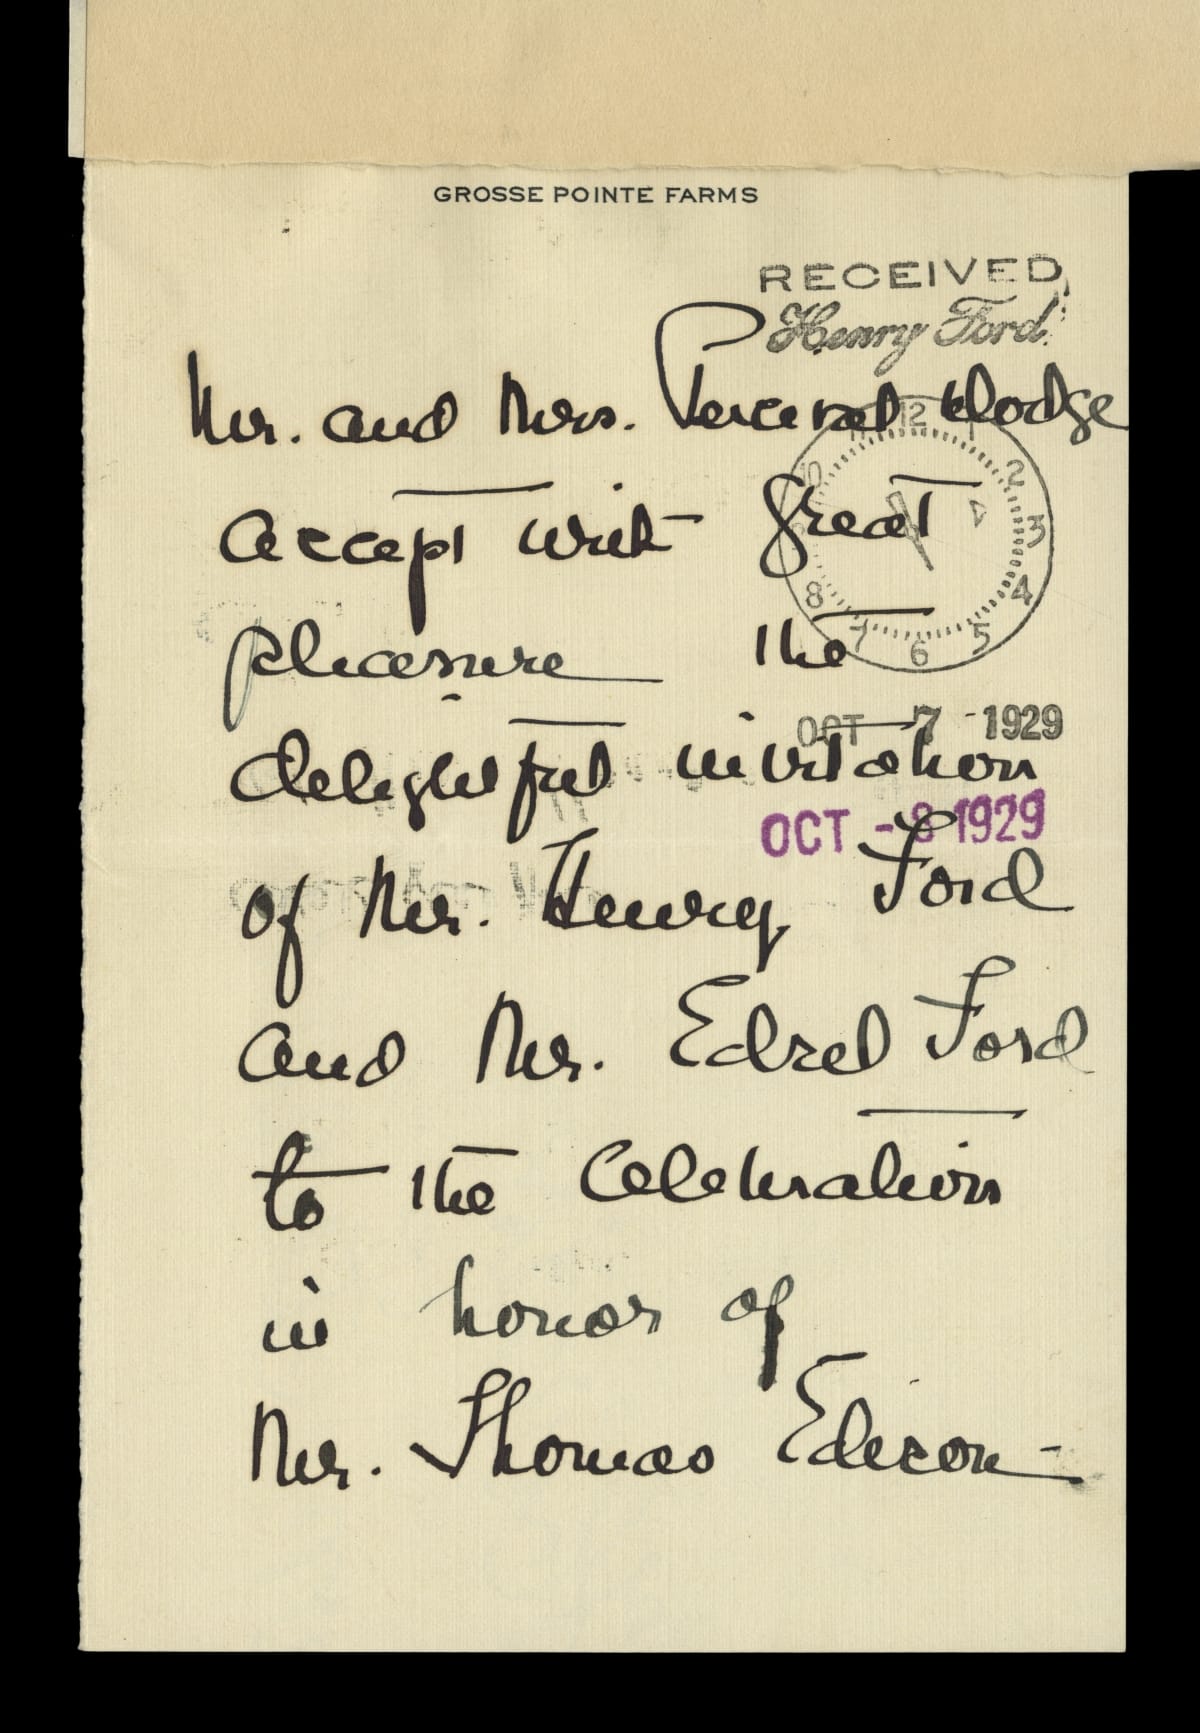 GROSSE POINTE FARMS
RECEIVED
Henry Ford
Mr. and Mrs. Percival Dodge
12
1
2
3
4
5
6
7
8
10
accept with great
pleasure the
OCT 7 1929
delightful invitation
OCT - 8 1929
of Mr. Henry Ford
and Mr. Edsel Ford
to the Celebration
in honor of
Mr. Thomas Edison -